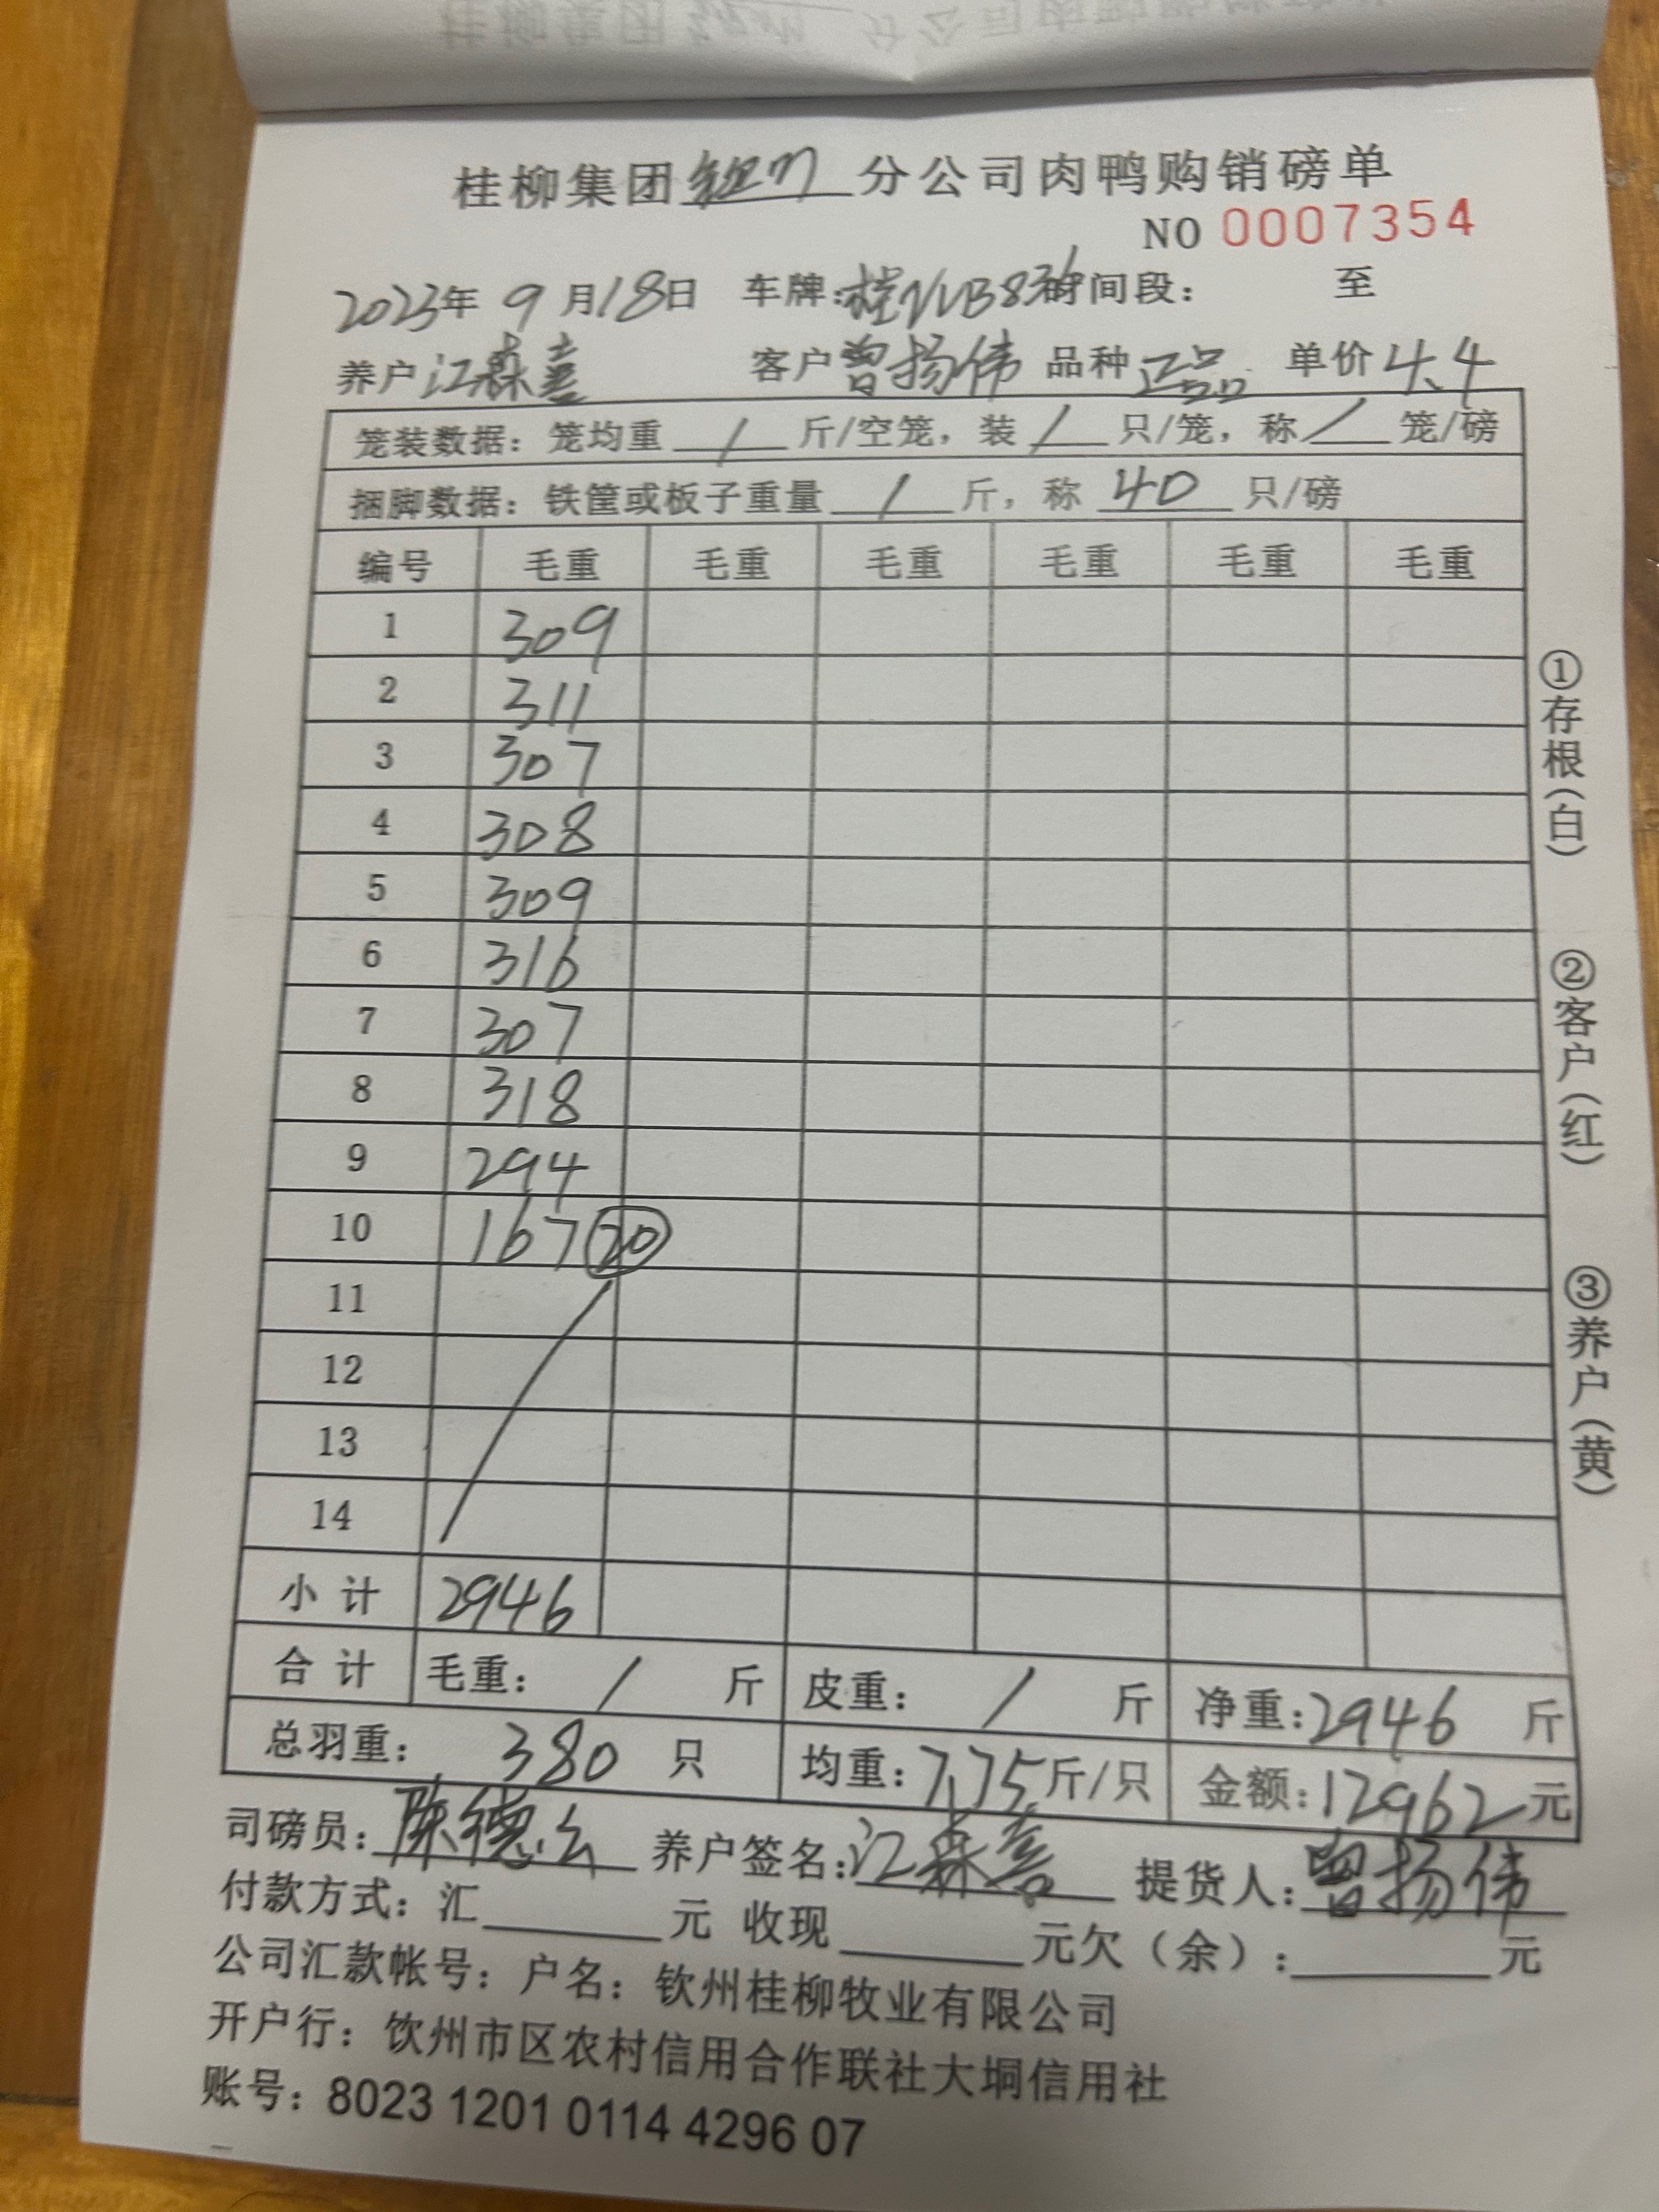 桂柳集团 分公司肉鸭购销磅单
NO 0007354
2023年 9 月18日 车牌: 时间段: 至
养户 江森喜 客户 曾扬伟 品种 正品 单价 4.4
笼装数据: 笼均重 / 斤/空笼, 装 / 只/笼, 称 / 笼/磅
捆脚数据: 铁筐或板子重量 / 斤, 称 40 只/磅
编号 毛重 毛重 毛重 毛重 毛重 毛重
1 309
2 311
3 307
4 308
5 309
6 316
7 307
8 318
9 294
10 167 20
11
12
13
14
小计 2946
合计 毛重: / 斤 皮重: / 斤 净重: 2946 斤
总羽重: 380 只 均重: 7.75 斤/只 金额: 12962 元
司磅员: 陈德 养户签名: 江森喜 提货人: 曾扬伟
付款方式: 汇 元 收现 元欠(余): 元
公司汇款帐号: 户名: 钦州桂柳牧业有限公司
开户行: 钦州市区农村信用合作联社大垌信用社
账号: 8023 1201 0114 4296 07
①存根(白)
②客户(红)
③养户(黄)